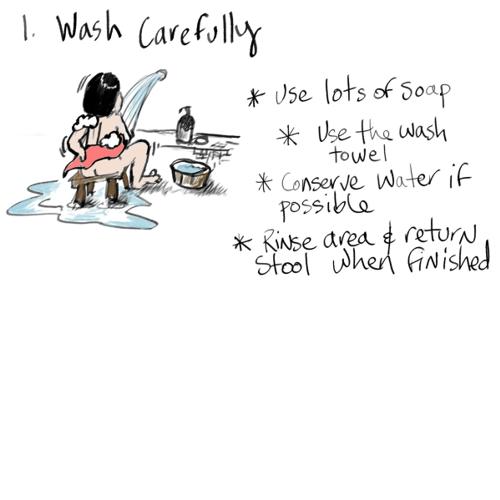 1. Wash Carefully
* Use lots of soap
* Use the wash
towel
* Conserve water if
possible
* Rinse area & return
stool when finished